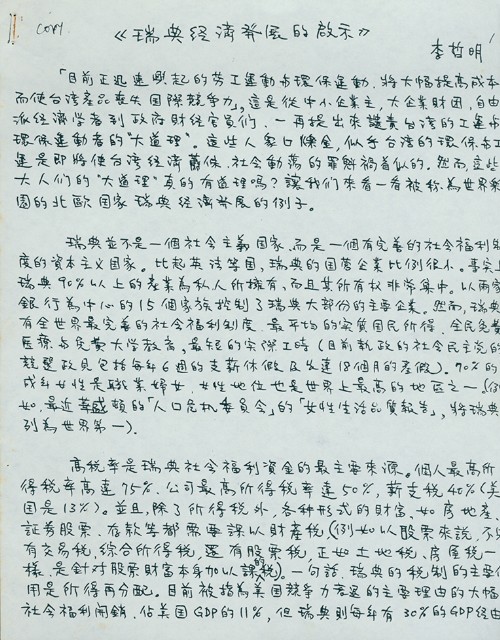 copy
《瑞典經濟發展的啟示》
李哲明
「目前正迅速興起的勞工運動與環保運動,將大幅提高成本
而使台灣產品喪失國際競爭力」,這是從中小企業主,大企業財團,自由
派經濟學者到政府財經官員們,一再提出來譴責台灣的工運與
環保運動者的"大道理"。這些人眾口鑠金,似乎台灣的環保與工
運是即將使台灣經濟蕭條、社會動蕩的罪魁禍首似的。然而,這些
大人們的"大道理"真的有道理嗎?讓我們來看一看被称為世界
園的北歐国家瑞典經濟發展的例子。
瑞典並不是一個社会主義国家,而是一個有完善的社会福利制
度的資本主义国家。比起英法等国,瑞典的国营企業比例很小。事实上
瑞典90%以上的產業為私人所擁有,而且其所有权非常集中。以兩家
銀行為中心的15個家族控制了瑞典大部份的主要企業。然而,瑞典
有全世界最完善的社会福利制度、最平均的实質国民所得、全民免費
医療与免費大学教育,最短的实際工時(目前執政的社会民主党的
競選政見包括每年6週的支薪休假及長達18個月的產假)。90%的
成年女性是職業婦女,女性地位也是世界上最高的地區之一。(例
如,最近華盛頓的「人口危机委員会」的「女性生活品質報告」,將瑞典
列為世界第一)。
高税率是瑞典社会福利資金的最主要來源。個人最高所
得税率高達75%,公司最高所得税率達50%,薪支税40%(美
国是13%)。並且,除了所得税外,各种形式的財富,如房地產、
証券股票、存款等都需要課以財產税(例如以股票來說,不
有交易税,綜合所得税,還有股票税,正如土地税、房屋税一
樣,是針對股票財富本身加以課税的)。一句話,瑞典的税制的主要
用是所得再分配。目前被指為美国競争力衰落的主要理由的大幅
社会福利開銷,佔美国GDP的11%,但瑞典則每年有30%的GDP經由